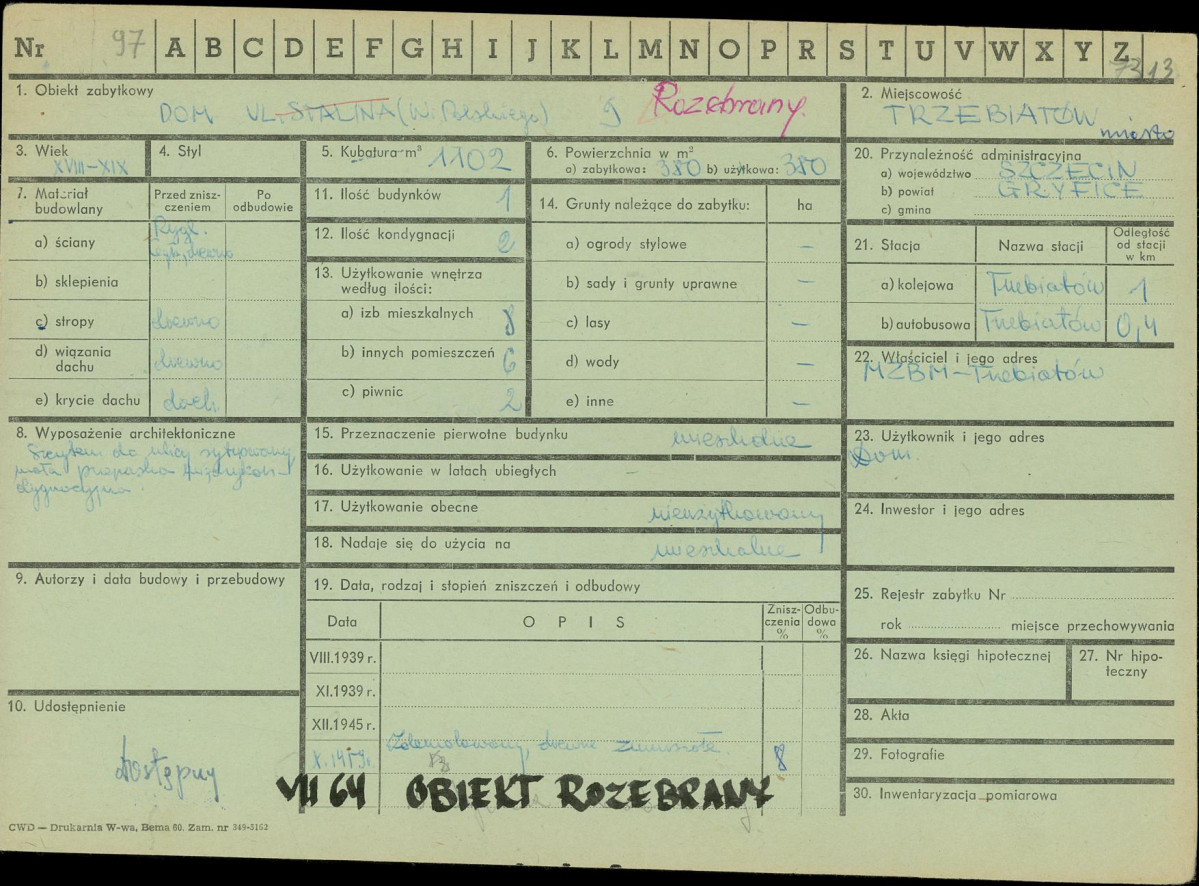 Nr 97 A B C D E F G H I J K L M N O P R S T U V W X Y Z
7313
1. Obiekt zabytkowy
DOM UL. STALINA (W. Polskiego) 9 Rozebrany.
2. Miejscowość
TRZEBIATÓW
miasto
3. Wiek
XVIII–XIX
4. Styl
5. Kubatura m³ 1102
6. Powierzchnia w m²
a) zabytkowa: 380 b) użytkowa: 380
20. Przynależność administracyjna
a) województwo SZCZECIN
b) powiat GRYFICE
c) gmina
7. Materiał budowlany
Przed zniszczeniem
Po odbudowie
a) ściany
Rygl.
drewno
b) sklepienia
c) stropy drewno
d) wiązania dachu drewno
e) krycie dachu dach.
11. Ilość budynków 1
12. Ilość kondygnacji 2
13. Użytkowanie wnętrza
według ilości:
a) izb mieszkalnych 8
b) innych pomieszczeń 6
c) piwnic 2
14. Grunty należące do zabytku: ha
a) ogrody stylowe –
b) sady i grunty uprawne –
c) lasy –
d) wody –
e) inne –
21. Stacja
Nazwa stacji
Odległość od stacji w km
a) kolejowa Trzebiatów 1
b) autobusowa Trzebiatów 0,4
22. Właściciel i jego adres
MZBM – Trzebiatów
8. Wyposażenie architektoniczne
Szczytem do ulicy sytuowany,
mała przepaska międzykon-
dygnacyjna.
15. Przeznaczenie pierwotne budynku mieszkalne
16. Użytkowanie w latach ubiegłych –
17. Użytkowanie obecne nieużytkowany
18. Nadaje się do użycia na mieszkalne
23. Użytkownik i jego adres
24. Inwestor i jego adres
9. Autorzy i data budowy i przebudowy
19. Data, rodzaj i stopień zniszczeń i odbudowy
Data
OPIS
Zniszczenia %
Odbudowa %
VIII.1939 r.
XI.1939 r.
XII.1945 r.
X. 1959r. Zdemolowany, drewno zmurszałe. 8
VII 64 OBIEKT ROZEBRANY
25. Rejestr zabytku Nr
rok miejsce przechowywania
26. Nazwa księgi hipotecznej
27. Nr hipoteczny
10. Udostępnienie
dostępny
28. Akta
29. Fotografie
30. Inwentaryzacja pomiarowa
CWD — Drukarnia W-wa, Bema 60. Zam. nr 349-5162